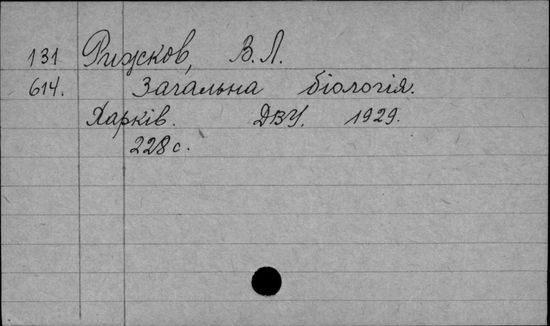 131 Рижков, В. Л.
614. Загальна біологія.
Харків. ДВУ. 1929.
228 с.